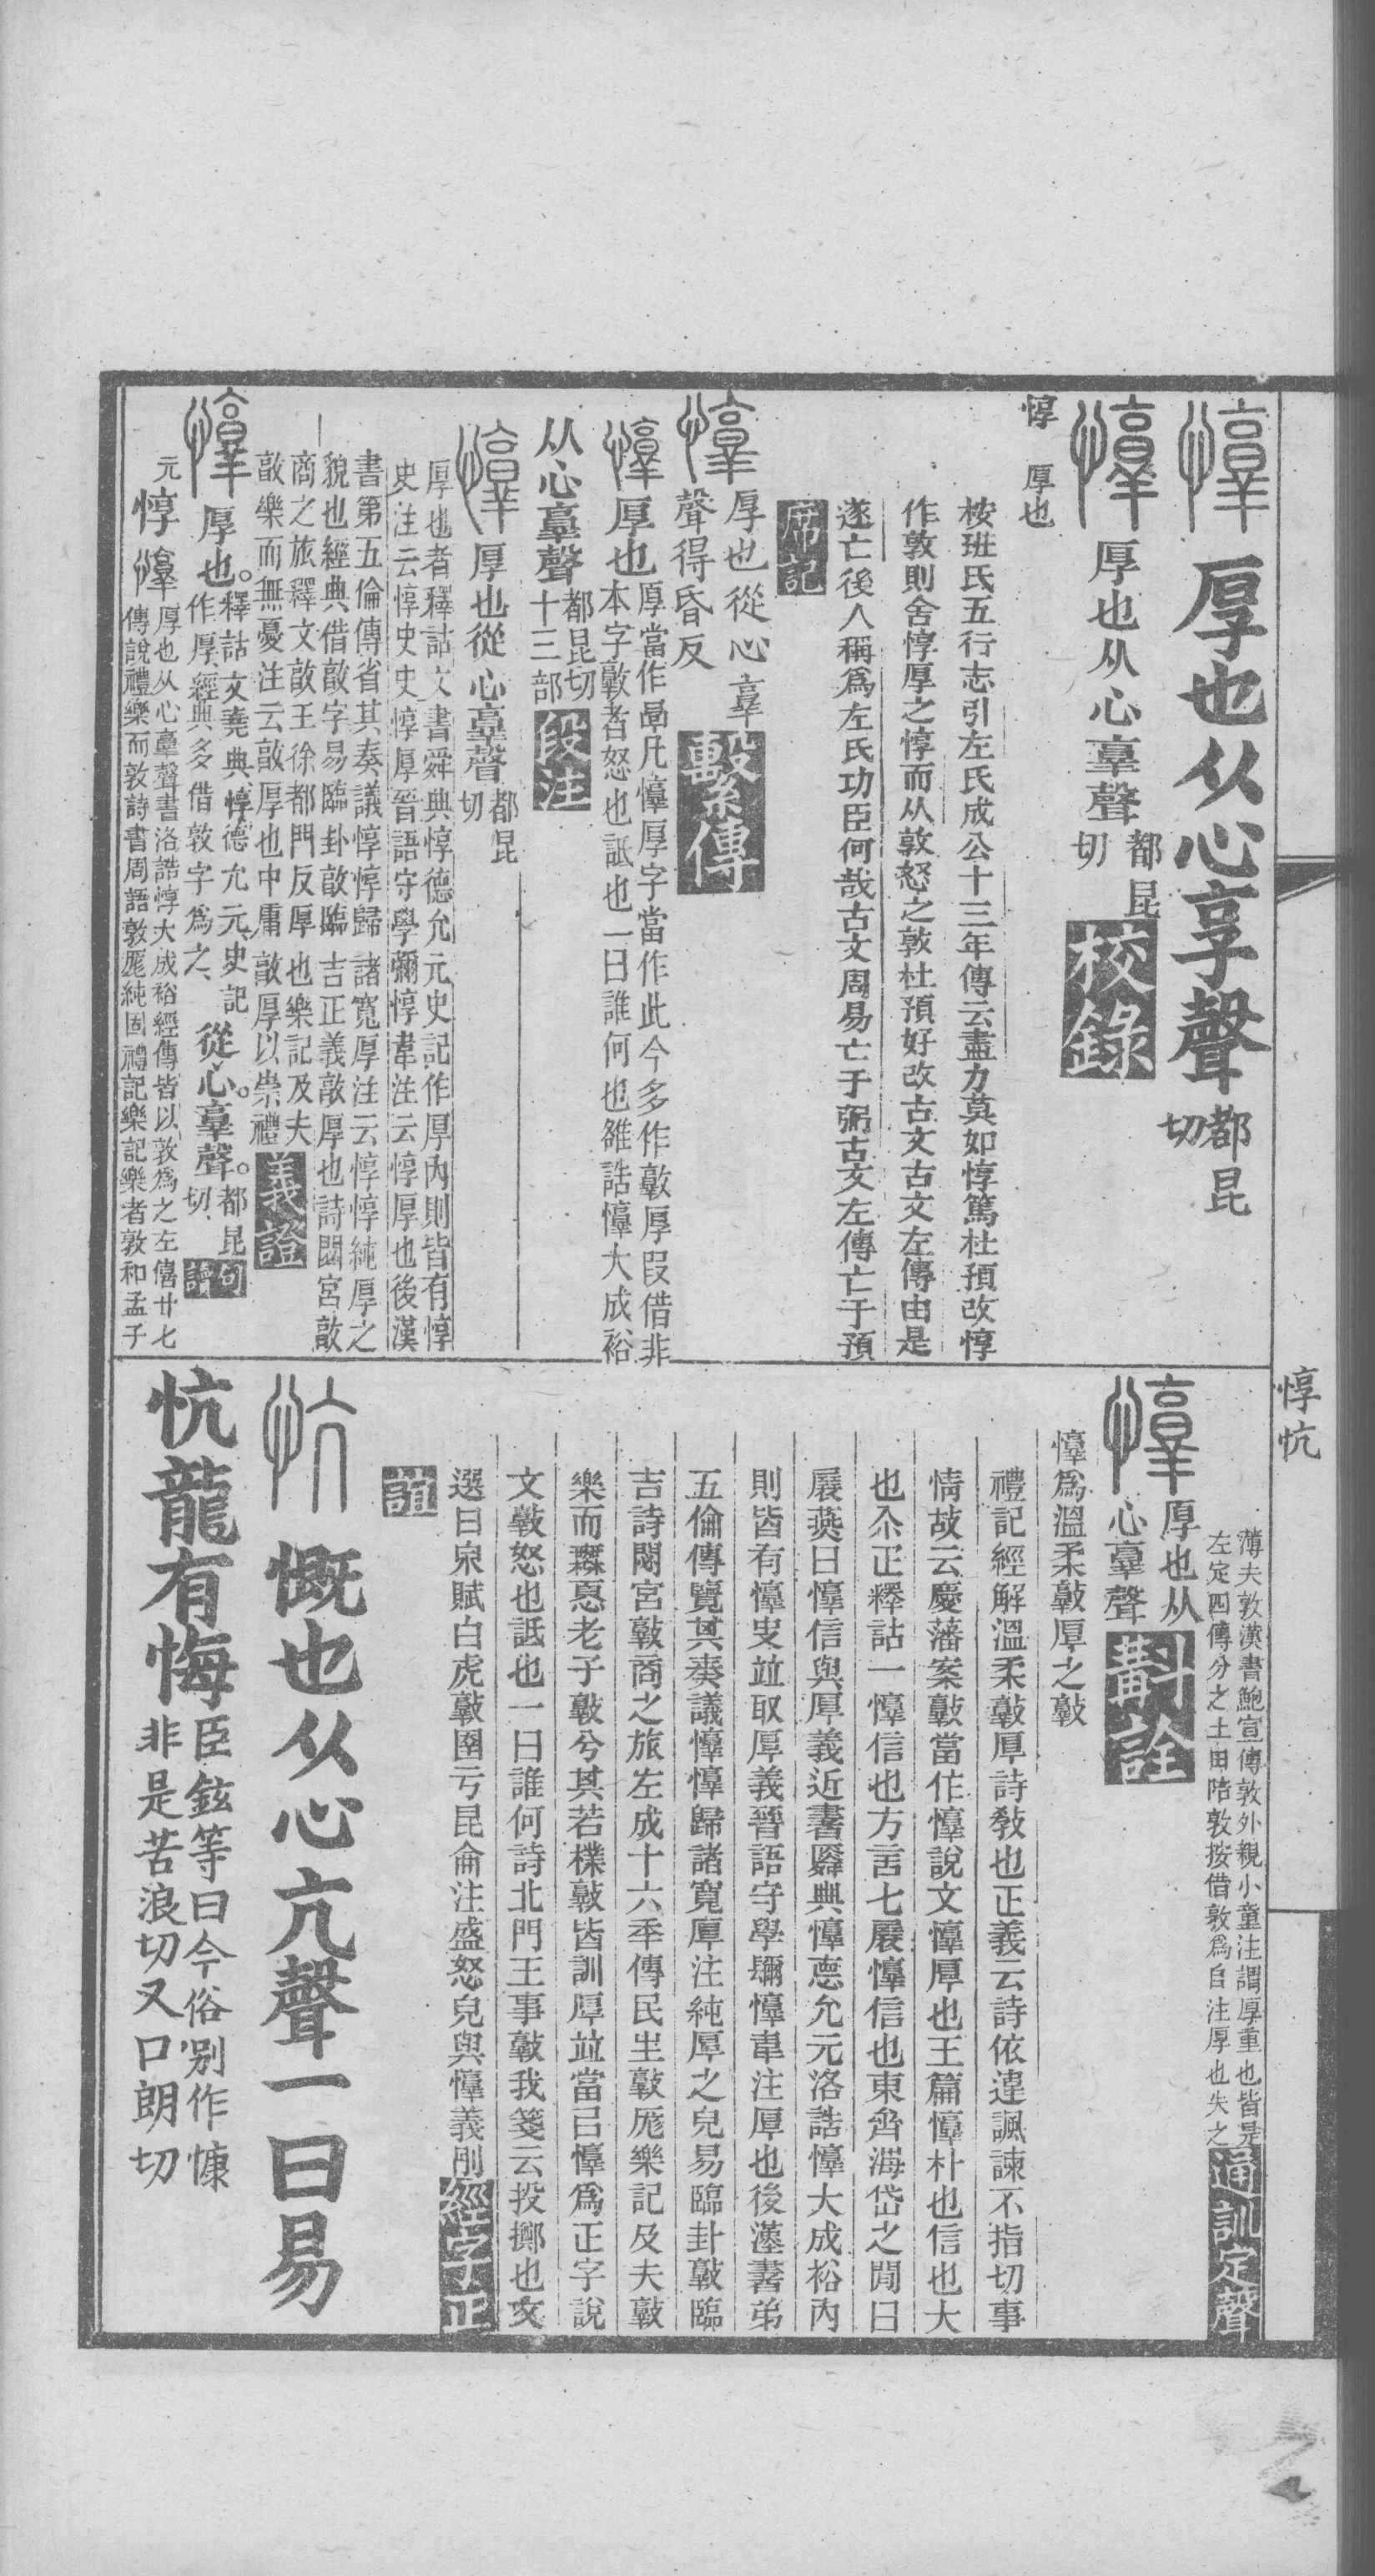 惇 厚也从心享聲都昆切
惇 厚也从心𦎧聲都昆切 校錄
惇 厚也
桉班氏五行志引左氏成公十三年傳云盡力莫如惇篤杜預改惇
作敦則舍惇厚之惇而从敦怒之敦杜預好改古文古文左傳由是
遂亡後人稱爲左氏功臣何哉古文周易亡于弼古文左傳亡于預
席記
惇 厚也從心𦎧
聲得昏反 繫傳
惇 厚也厚當作㫗凡惇厚字當作此今多作敦厚叚借非
本字敦者怒也詆也一曰誰何也雒誥惇大成裕
从心𦎧聲都昆切十三部 段注
惇 厚也從心𦎧聲都昆切
厚也者釋詁文書舜典惇德允元史記作厚內則皆有惇
史注云惇史史惇厚晉語守學彌惇韋注云惇厚也後漢
書第五倫傳省其奏議惇惇歸諸寬厚注云惇惇純厚之
貌也經典借敦字易臨卦敦臨吉正義敦厚也詩閟宮敦
商之旅釋文敦王徐都門反厚也樂記及夫
敦樂而無憂注云敦厚也中庸敦厚以崇禮 義證
惇 厚也。釋詁文堯典惇德允元史記
作厚經典多借敦字爲之、從心。𦎧聲。都昆切、 句讀
元 惇 惇 厚也从心𦎧聲書洛誥惇大成裕經傳皆以敦爲之左僖廿七
傳說禮樂而敦詩書周語敦厖純固禮記樂記樂者敦和孟子
惇忼
薄夫敦漢書鮑宣傳敦外親小童注謂厚重也皆是
左定四傳分之土田陪敦按借敦爲自注厚也失之 通訓定聲
惇 厚也从
心𦎧聲 斠詮
惇爲溫柔敦厚之敦
禮記經解溫柔敦厚詩教也正義云詩依違諷諫不指切事
情故云慶藩案敦當作惇說文惇厚也玉篇惇朴也信也大
也尒疋釋詁一惇信也方言七展惇信也東齊海岱之閒曰
展燕曰惇信與厚義近書舜典惇悳允元洛誥惇大成裕內
則皆有惇史竝取厚義晉語守學彌惇韋注厚也後漢書弟
五倫傳覽其奏議惇惇歸諸寬厚注純厚之皃易臨卦敦臨
吉詩閟宮敦商之旅左成十六年傳民生敦厖樂記及夫敦
樂而無憂老子敦兮其若樸敦皆訓厚竝當吕惇爲正字說
文敦怒也詆也一曰誰何詩北門王事敦我箋云投擲也文
選甘泉賦白虎敦圉亏昆侖注盛怒皃與惇義別 經字正
誼
忼 慨也从心亢聲一曰易
忼龍有悔臣鉉等曰今俗別作慷
非是苦浪切又口朗切